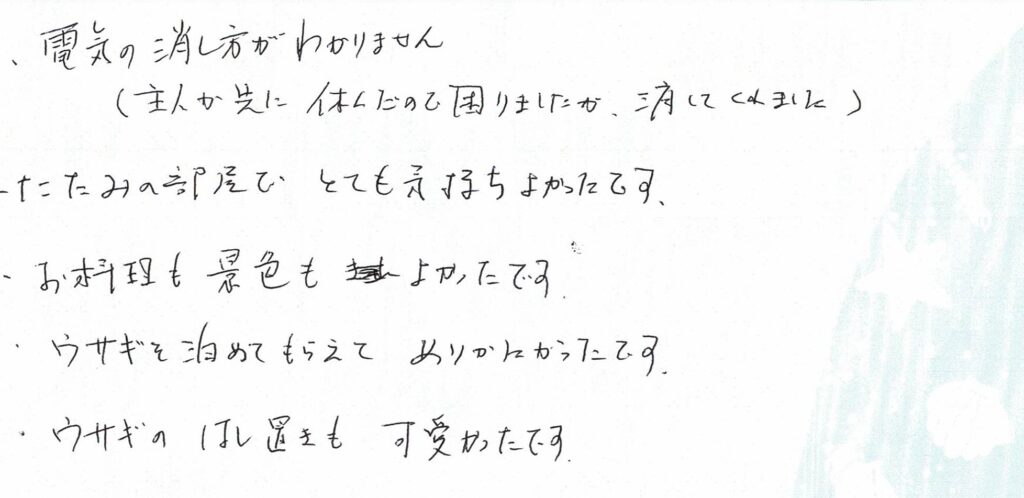 、電気の消し方がわかりません
(主人が先に休んだので困りましたが、消してくれました)
-たたみの部屋で とても気持ちよかったです、
・お料理も景色も よかったです.
・ウサギを泊めてもらえて ありがたかったです.
・ウサギの はし置きも 可愛かったです.